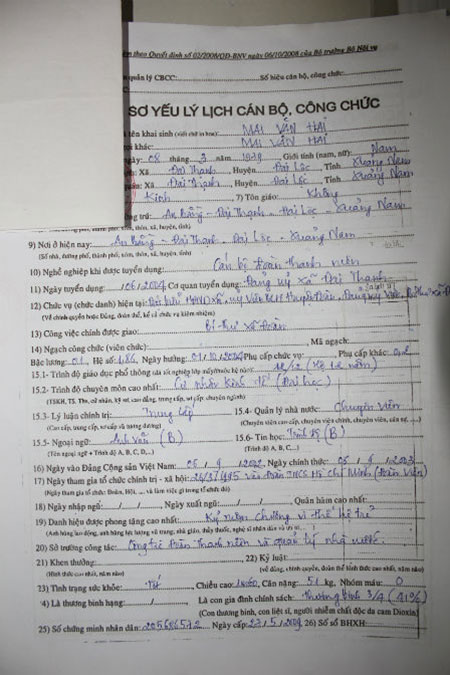 theo Quyết định số 02/2008/QĐ-BNV ngày 06/10/2008 của Bộ trưởng Bộ Nội vụ
quản lý CBCC: Số hiệu cán bộ, công chức:
SƠ YẾU LÝ LỊCH CÁN BỘ, CÔNG CHỨC
tên khai sinh (viết chữ in hoa): MAI VĂN HAI
khác: MAI VĂN HAI
ngày: 08 tháng 3 năm 1979, Giới tính (nam, nữ): Nam
Xã Đại Thạnh, Huyện Đại Lộc, Tỉnh Quảng Nam
Xã Đại Thạnh, Huyện Đại Lộc, Tỉnh Quảng Nam
Kinh 7) Tôn giáo: Không
trú: An Bằng - Đại Thạnh - Đại Lộc - Quảng Nam
(Số nhà, đường phố, thành phố, xóm, thôn, xã, huyện, tỉnh)
9) Nơi ở hiện nay: An Bằng - Đại Thạnh - Đại Lộc - Quảng Nam
(Số nhà, đường phố, thành phố, xóm, thôn, xã, huyện, tỉnh)
10) Nghề nghiệp khi được tuyển dụng: Cán bộ Đoàn thanh niên
11) Ngày tuyển dụng: /06/2004 Cơ quan tuyển dụng: Đảng uỷ xã Đại Thạnh
12) Chức vụ (chức danh) hiện tại:
(Về chính quyền hoặc Đảng, đoàn thể, kể cả chức vụ kiêm nhiệm)
13) Công việc chính được giao: Bí thư xã Đoàn
14) Ngạch công chức (viên chức): Mã ngạch:
Bậc lương: 01, Hệ số: 1,86, Ngày hưởng: 01/10/2004 Phụ cấp chức vụ: Phụ cấp khác: 0,2
15.1- Trình độ giáo dục phổ thông (đã tốt nghiệp lớp mấy/thuộc hệ nào): 12/12 (Hệ 12 năm)
15.2- Trình độ chuyên môn cao nhất: Cử nhân Kinh tế (Đại học)
(TSKH, TS, Ths, cử nhân, kỹ sư, cao đẳng, trung cấp, sơ cấp; chuyên ngành)
15.3- Lý luận chính trị: Trung cấp 15.4- Quản lý nhà nước: Chuyên viên
(Cao cấp, trung cấp, sơ cấp và tương đương) (Chuyên viên cao cấp, chuyên viên chính, chuyên viên, cán sự, ...)
15.5- Ngoại ngữ: Anh văn (B) 15.6- Tin học: Trình độ (B)
(Tên ngoại ngữ + Trình độ A, B, C, D,...) (Trình độ A, B, C,...)
16) Ngày vào Đảng Cộng sản Việt Nam: 05/9/2002, Ngày chính thức: 05/9/2003
17) Ngày tham gia tổ chức chính trị - xã hội: 26/3/1995 Vào Đoàn TNCS Hồ Chí Minh (Đoàn viên)
(Ngày tham gia tổ chức: Đoàn, Hội, ... và làm việc gì trong tổ chức đó)
18) Ngày nhập ngũ: / / , Ngày xuất ngũ: / / Quân hàm cao nhất:
19) Danh hiệu được phong tặng cao nhất: Kỷ niệm chương vì thế hệ trẻ
(Anh hùng lao động, anh hùng lực lượng vũ trang, nhà giáo, thầy thuốc, nghệ sĩ nhân dân và ưu tú...)
20) Sở trường công tác: Công tác Đoàn Thanh niên và quản lý nhà nước.
21) Khen thưởng: 22) Kỷ luật:
(Hình thức cao nhất, năm nào) (về đảng, chính quyền, đoàn thể hình thức cao nhất, năm nào)
23) Tình trạng sức khỏe: Tốt, Chiều cao: 1m60, Cân nặng: 51 kg, Nhóm máu: O
4) Là thương binh hạng: / , Là con gia đình chính sách: Thương binh 3/4 (41%)
(Con thương binh, con liệt sĩ, người nhiễm chất độc da cam Dioxin)
25) Số chứng minh nhân dân: 205686572 Ngày cấp: 27/5/2009 26) Số sổ BHXH: